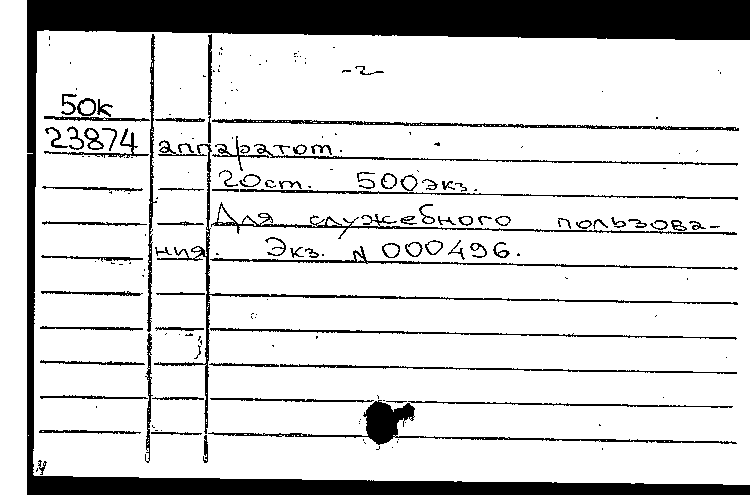 -2-
50к
23874 аппаратом.
20см. 500экз.
Для служебного пользова-
ния. Экз. N 000496.